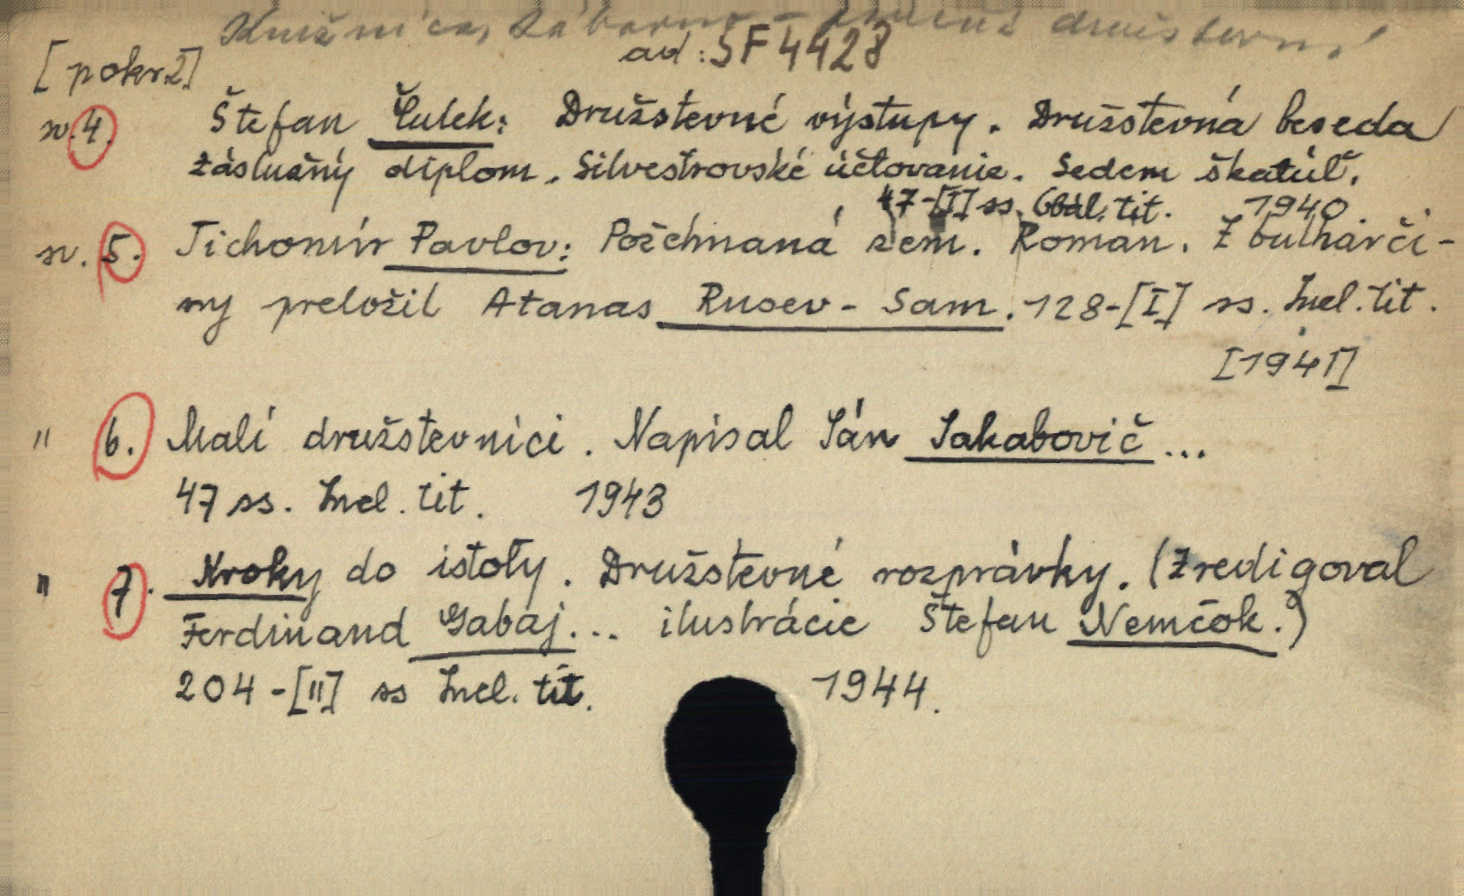 Knižnica, Zábavno - družstevná
ad: SF 4428
[pokr. 2]
sv. 4. Štefan Čulek: Družstevné výstupy. Družstevná beseda
Záslužný diplom. Silvestrovské účtovanie. Sedem škatúľ.
47-[I] ss. Obál. tit. 1940.
sv. 5. Tichomír Pavlov: Požehnaná zem. Roman. Z bulharči-
ny preložil Atanas Rusev-Sam. 128-[I] ss. Incl. tit.
[1941]
" 6. Malí družstevníci. Napísal Ján Jakabovič...
47 ss. Incl. tit. 1943
" 7. Kroky do istoty. Družstevné rozprávky. (Zredigoval
Ferdinand Gabaj... ilustrácie Štefan Nemčok.)
204-[II] ss Incl. tit. 1944.